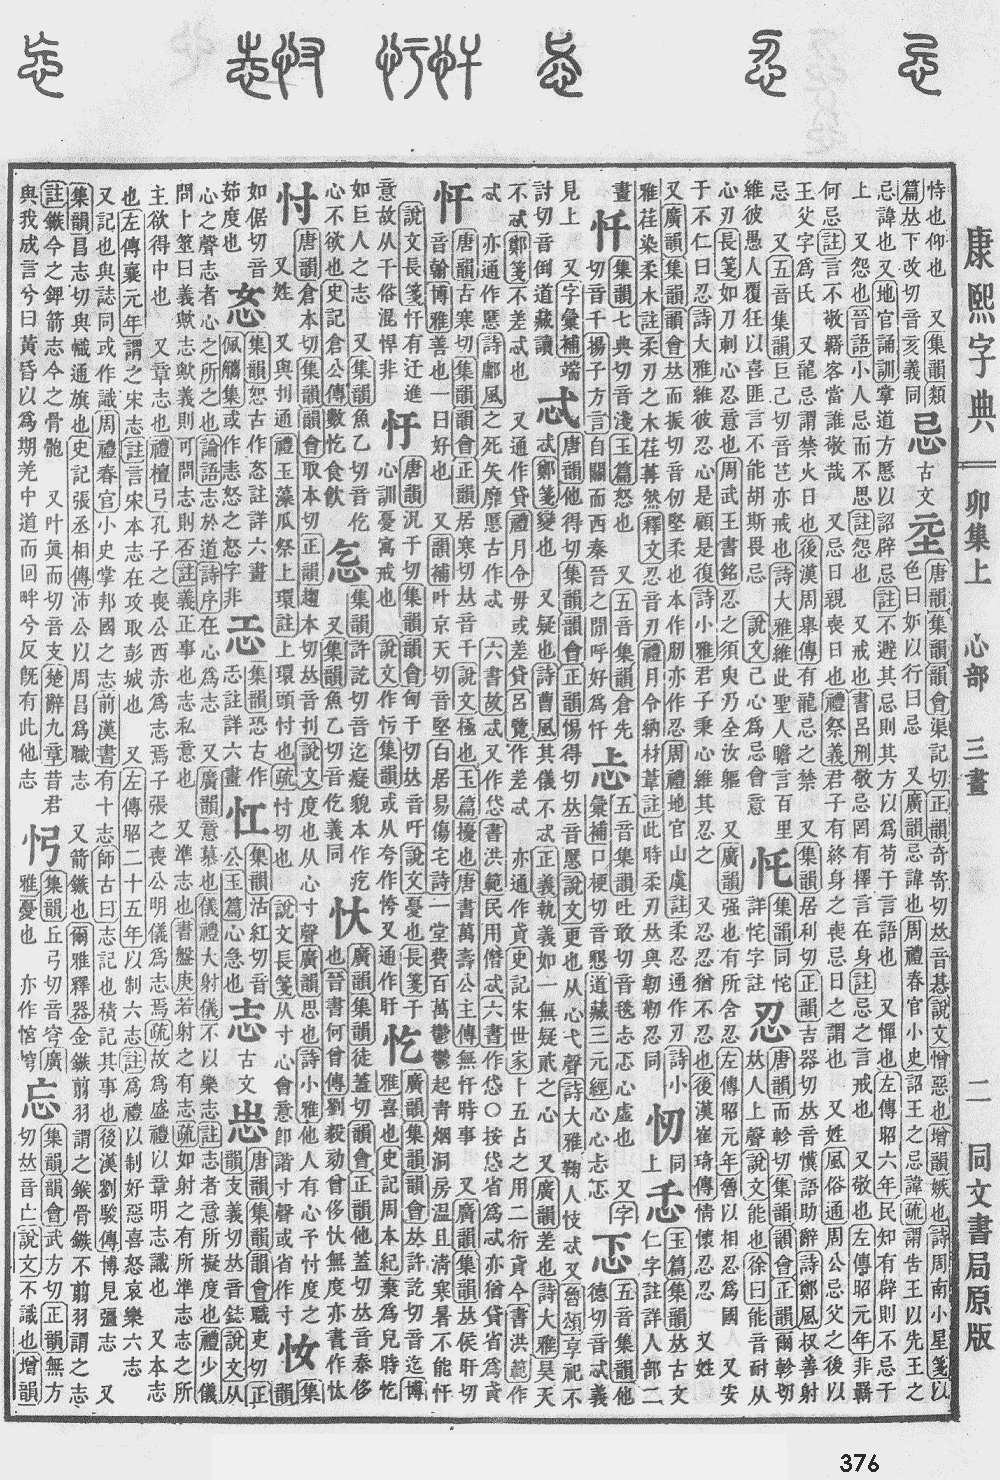 康熙字典 卯集上 心部 三畫 二 同文書局原版
恃也仰也 又集韻類
篇𠀤下改切音亥義同
忌 古文
唐韻集韻韻會渠記切正韻奇寄切𠀤音惎說文憎惡也增韻嫉也詩周南小星箋以
色曰妒以行曰忌 又廣韻忌諱也周禮春官小史詔王之忌諱疏謂告王以先王之
忌諱也又地官誦訓掌道方慝以詔辟忌註不避其忌則其方以爲苟于言語也 又憚也左傳昭六年民知有辟則不忌于
上 又怨也晉語小人忌而不思註怨也 又戒也書呂刑敬忌罔有擇言在身註忌之言戒也又敬也左傳昭元年非羈
何忌註言不敬羈客當誰敬哉 又忌日親喪日也禮祭義君子有終身之喪忌日之謂也 又姓風俗通周公忌父之後以
王父字爲氏 又龍忌謂禁火日也後漢周舉傳有龍忌之禁 又集韻居利切正韻吉器切𠀤音懻語助辭詩鄭風叔善射
忌 又五音集韻巨己切音芑亦戒也詩大雅維此聖人瞻言百里
維彼愚人覆狂以喜匪言不能胡斯畏忌 說文己心爲忌會意
忍 唐韻而軫切集韻韻會正韻爾軫切
𠀤人上聲說文能也徐曰能音耐从
心刃 長箋如刀刺心忍意也周武王書銘忍之須臾乃全汝軀 又廣韻强也有所舍忍左傳昭元年魯以相忍爲國 又安
于不仁曰忍詩大雅維彼忍心是顧是復詩小雅君子秉心維其忍之 又忍忍猶不忍也後漢崔琦傳情懷忍忍 又姓
又廣韻集韻韻會𠀤而振切音仞堅柔也本作肕亦作忍周禮地官山虞註柔忍通作刃詩小
雅荏染柔木註柔刃之木荏苒然釋文忍音刃禮月令納材葦註此時柔刃𠀤與韌靭忍同
忈 玉篇集韻𠀤古文
仁字註詳人部二
畫
忏 集韻七典切音淺玉篇怒也 又五音集韻倉先
切音千揚子方言自關而西秦晉之閒呼好爲忏
忐 五音集韻吐敢切音毯忐忑心虛也 又字
彙補口梗切音懇道藏三元經心心忐忑
忑 五音集韻他
德切音忒義
見上 又字彙補端
討切音倒道藏讀
忒 唐韻他得切集韻韻會正韻惕得切𠀤音慝說文更也从心弋聲詩大雅鞫人忮忒又魯頌享祀不
忒鄭箋變也 又疑也詩曹風其儀不忒正義執義如一無疑貳之心 又廣韻差也詩大雅昊天
不忒鄭箋不差忒也 又通作貸禮月令毋或差貸呂覽作差忒 亦通作貣史記宋世家十五占之用二衍貣今書洪範作
忒 亦通作慝詩鄘風之死矢靡慝古作忒 六書故忒又作㤴書洪範民用僭忒六書作㤴〇按㤴省爲忒亦猶貸省爲貣
忓 唐韻古寒切集韻韻會正韻居寒切𠀤音干說文極也玉篇擾也唐書萬壽公主傳無忓時事 又廣韻集韻𠀤侯旰切
音翰博雅善也一曰好也 又韻補叶京天切音堅白居易傷宅詩一堂費百萬鬱鬱起靑烟洞房温且淸寒暑不能忓
說文長箋忓有迂進
意故从干俗混悍非
忬 唐韻
忔 廣韻集韻韻會𠀤許訖切音迄博
雅喜也史記周本紀棄爲兒時忔
如巨人之志 又集韻魚乙切音仡
心不欲也史記倉公傳數忔食飮
忥 集韻許訖切音迄癡貌本作疙
又集韻魚乙切音仡義同
忕 廣韻集韻徒蓋切韻會正韻他蓋切𠀤音泰侈
也晉書何曾傳劉毅劾曾侈忕無度亦書作忲
忖 唐韻倉本切集韻韻會取本切正韻趨本切𠀤音刌說文度也从心寸聲廣韻思也詩小雅他人有心予忖度之
又姓 又與刌通禮玉藻瓜祭上環註上環頭忖也疏忖切也 說文長箋从寸心會意卽諧寸聲或省作寸
忞
忹
志 古文
唐韻集韻韻會職吏切正
韻支義切𠀤音鋕說文从
心之聲志者心之所之也論語志於道詩序在心爲志 又廣韻意慕也儀禮大射儀不以樂志註志者意所擬度也禮少儀
問卜筮曰義歟志歟義則可問志則否註義正事也志私意也 又準志也書盤庚若射之有志疏如射之有所準志志之所
主欲得中也 又章志也禮檀弓孔子之喪公西赤爲志焉子張之喪公明儀爲志焉疏故爲盛禮以章明志識也 又本志
也左傳襄元年謂之宋志註言宋本志在攻取彭城也 又左傳昭二十五年以制六志註爲禮以制好惡喜怒哀樂六志 又
又記也與誌同或作識周禮春官小史掌邦國之志前漢書有十志師古曰志記也積記其事也後漢劉駿傳博見彊志 又
集韻昌志切與幟通旗也史記張丞相傳沛公以周昌爲職志 又箭鏃也爾雅釋器金鏃翦羽謂之鍭骨鏃不翦羽謂之志
註鏃今之錍箭志今之骨骲 又叶眞而切音支楚辭九章昔君
與我成言兮曰黃昏以爲期羌中道而回畔兮反旣有此他志
集韻丘弓切音穹廣
雅憂也 亦作㤨
忘 集韻韻會武方切正韻無方
切𠀤音亡說文不識也增韻
376